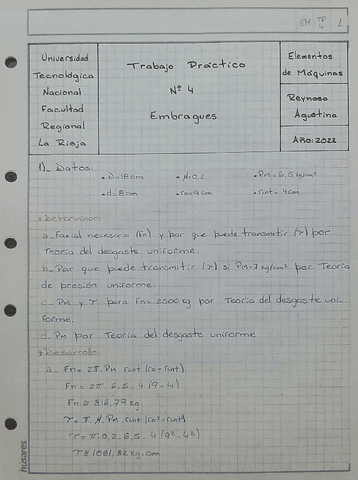 EM TP 4 1
Universidad Tecnológica Nacional Facultad Regional La Rioja
Trabajo Práctico
Nº 4
Embragues
Elementos de Máquinas
Reynoso Agustina
Año: 2022
1)_ Datos:
• D=18cm • μ=0,2 • PM=6,5 kg/cm²
• d=8cm • ro=9cm • rint=4cm
Determinar:
a_ Faxial necesaria (Fn) y par que puede transmitir (τ) por
Teoría del desgaste uniforme.
b_ Par que puede transmitir (τ) si PM=7 kg/cm² por Teoría
de presión uniforme.
c_ PM y τ para Fn=2500kg por Teoría del desgaste uni-
forme.
d_ PM por Teoría del desgaste uniforme
Desarrollo:
a_ Fn = 2π.PM.rint (ro-rint)
Fn = 2π.6,5.4 (9-4)
Fn ≅ 816,79 kg
τ = π.μ.PM.rint (ro²-rint²)
τ = π.0,2.6,5.4 (9²-4²)
τ ≅ 1061,82 kg.cm
húsares